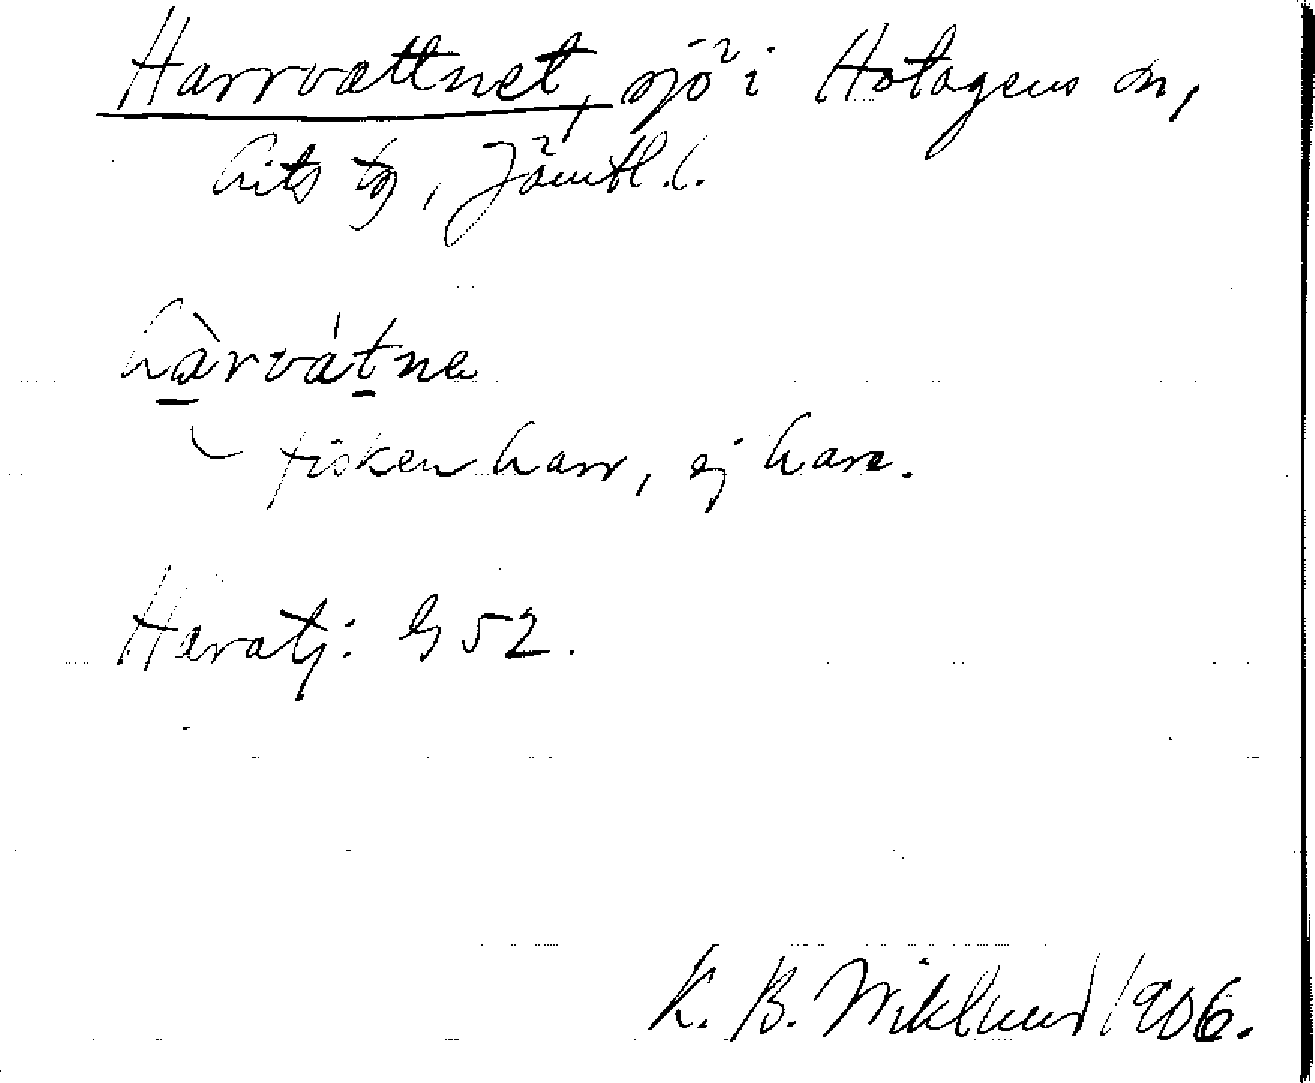 Harrvattnet, sjö i Hotagens sn,
Lits tg, Jämtl. l.
hàrvátne
fisken harr, ej hare.
Haratj: G 52.
K. B. Wiklund 1906.